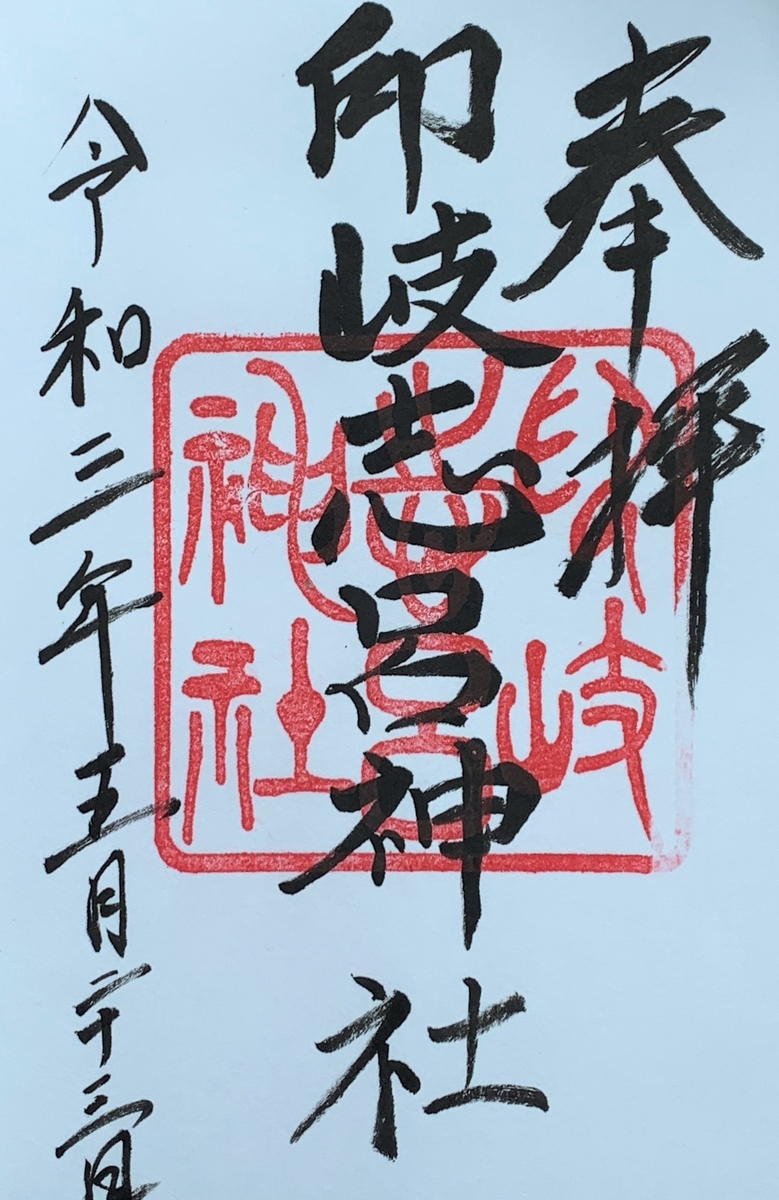 奉拝
印岐志呂神社
印岐
志呂
神社
令和三年五月二十三日